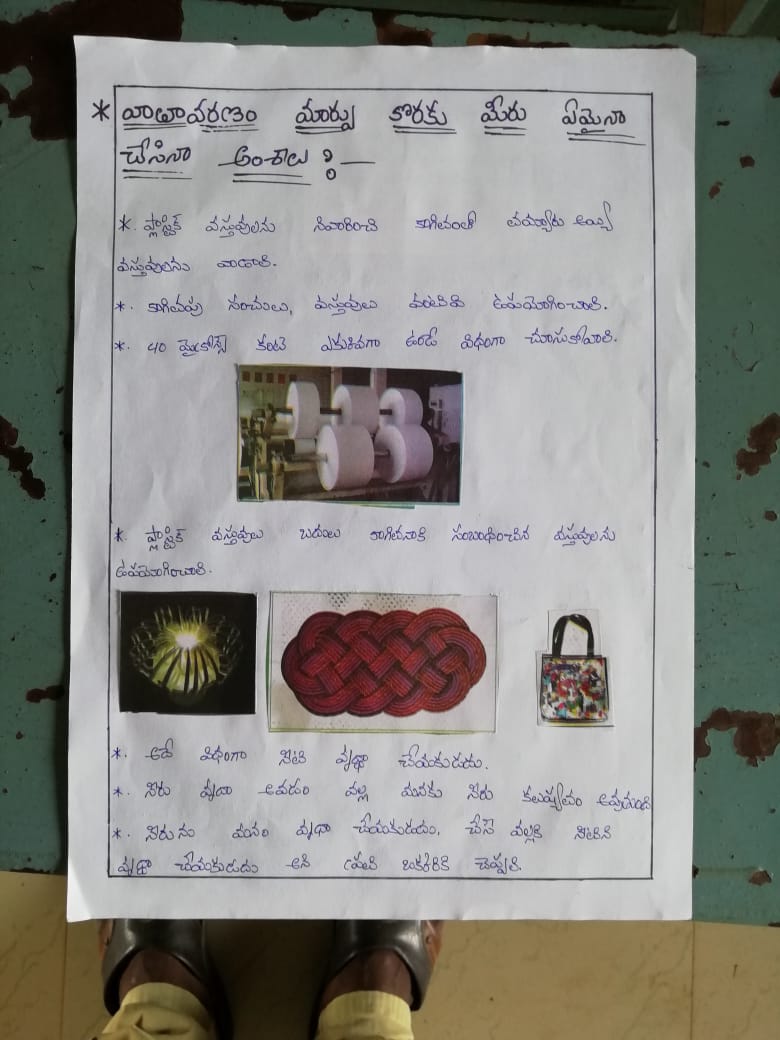 * వాతావరణం మార్పు కొరకు మీరు ఏమైనా
చేసినా అంశాలు :-
*. ప్లాస్టిక్ వస్తువులను నివారించి కాగితంతో తయ్యారు అయ్యే
వస్తువులను వాడాలి.
*. కాగితపు సంచులు, వస్తువులు వంటివి ఉపయోగించాలి.
*. 40 మైక్రోన్స్ కంటె ఎకువగా ఉండే విధంగా చూసుకోవాలి.
*. ప్లాస్టిక్ వస్తువులు బదులు కాగితానికి సంబంధించిన వస్తువులను
ఉపయోగించాలి.
*. అదే విధంగా నీటి వృధా చేయకుడదు.
*. నీరు వృదా అవడం వల్ల మనకు నీరు కలుష్యతం అవుతుంది
*. నీరును మనం వృధా చేయకుడదు, చేసే వల్లకి నీటిని
వృధా చేయకుడదు అని ప్రతి ఒక్కరికి చెప్పాలి.